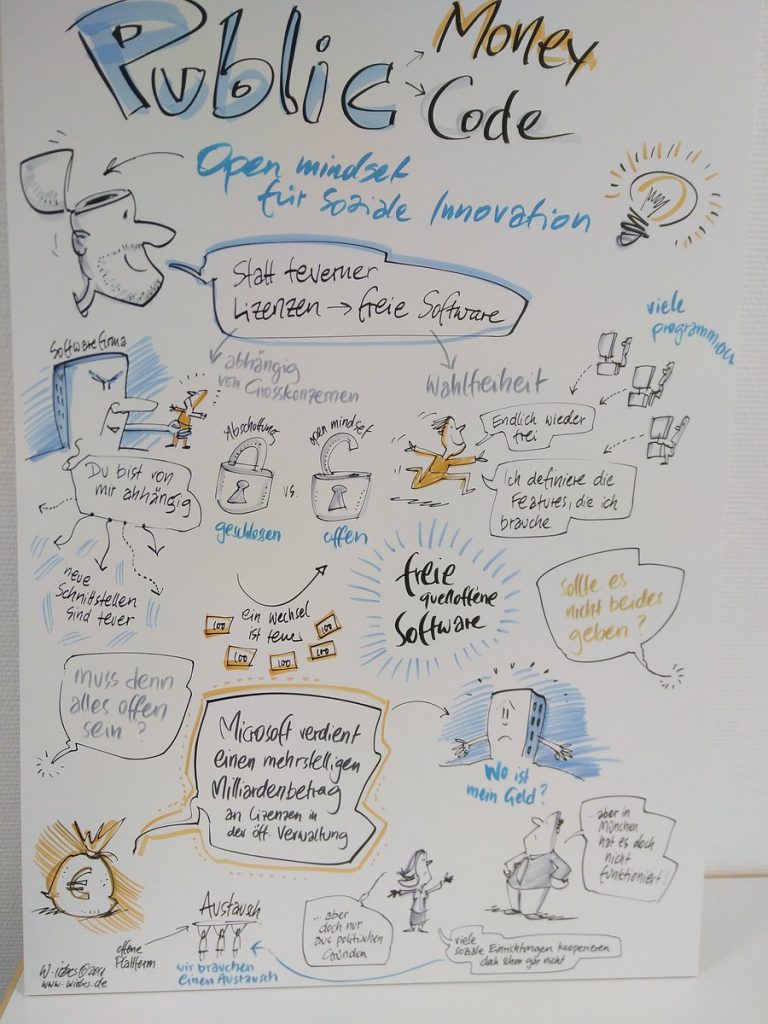 Public
Money
Code
Open mindset
für Soziale Innovation
Statt teuerner
Lizenzen → freie Software
viele
programmierer
Softwarefirma
abhängig
von Grosskonzernen
Wahlfreiheit
Endlich wieder
frei
Ich definiere die
Features, die ich
brauche
Du bist von
mir abhängig
Abschottung
geschlossen
vs.
open mindset
offen
neue
Schnittstellen
sind teuer
ein Wechsel
ist teuer
100
100
100
100
100
freie
quelloffene
Software
Sollte es
nicht beides
geben?
muss denn
alles offen
sein?
Microsoft verdient
einen mehrstelligen
Milliardenbetrag
an Lizenzen in
der öff. Verwaltung
Wo ist
mein Geld?
€
...aber in
München
hat es doch
nicht
funktioniert!
...aber
doch nur
aus politischen
Gründen
viele
soziale Einrichtungen kooperieren
doch schon gar nicht
Austausch
offene
Plattform
wir brauchen
einen Austausch
www.wiebo.de